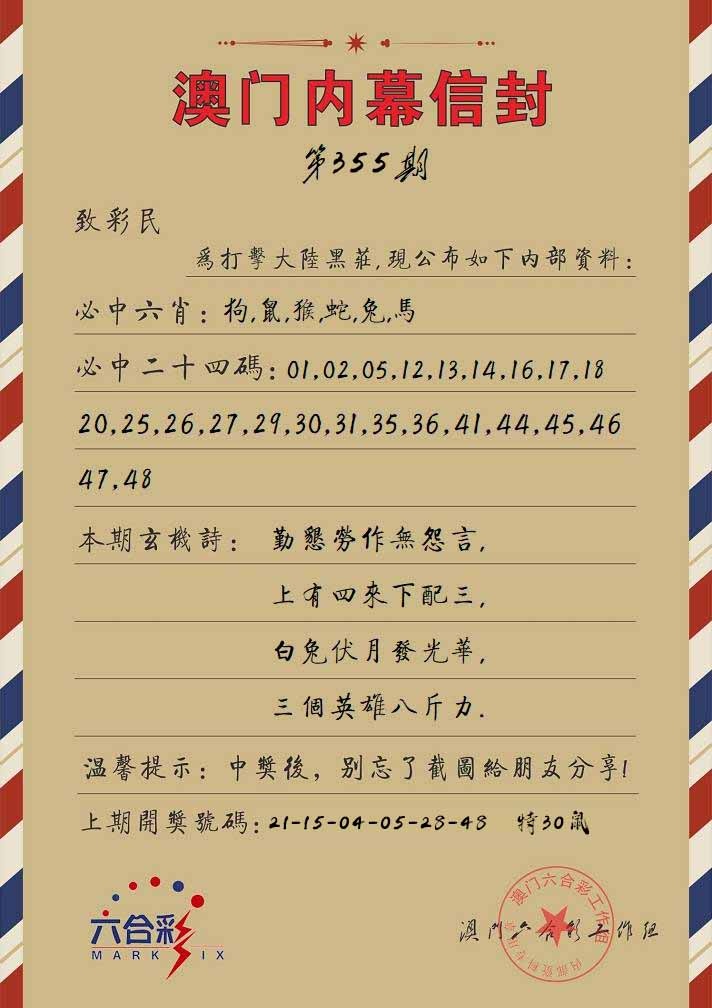 澳门内幕信封
第355期
致彩民
為打擊大陸黑莊,現公布如下内部資料:
必中六肖:狗,鼠,猴,蛇,兔,馬
必中二十四碼:01,02,05,12,13,14,16,17,18
20,25,26,27,29,30,31,35,36,41,44,45,46
47,48
本期玄機詩: 勤懇勞作無怨言,
上有四來下配三,
白兔伏月發光華,
三個英雄八斤力.
温馨提示:中獎後,别忘了截圖給朋友分享!
上期開獎號碼:21-15-04-05-28-48 特30鼠
六合彩
MARK SIX
澳門六合彩工作组
澳门六合彩工作组
内部资料专用章